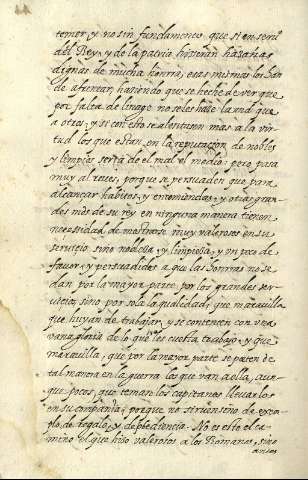 temer y no sin fundamento que si en serui
del Rey, y de la patria hizieran hazañas
dignas de mucha honrra, esas mismas los han
de afrentar, haziendo que se heche de ver que
por falta de linage no se les haze la md que
a otros, y si con esto se alentasen mas a la vir
tud los que estan en la reputacion de nobles
y limpios seria de el mal el medio: pero pasa
muy al reues, porque se persuaden que para
alcançar habitos, y encomiendas, y otras gran
des mds de su rey en ninguna manera tienen
necessidad de mostrarse muy valerosos en su
seruicio sino nobleza, y limpieza, y un poco de
fauor, y persuadidos a que las honrras no se
dan por la mayor parte por los grandes ser-
uicios sino por sola la qualidad, que marauilla
que huyan de trabajar, y se contenten con una
vana gloria de lo que les cuesta trabajo, y que
marauilla, que por la mayor parte se paten de
tal manera en la guerra los que van a ella, aun
que pocos, que teman los capitanes lleuarlos
en su compañia, porque no siruen sino de exem
plo de regalo, y de obediencia. No es este el ca
mino el que hizo valerosos a los Romanos, sino
antes